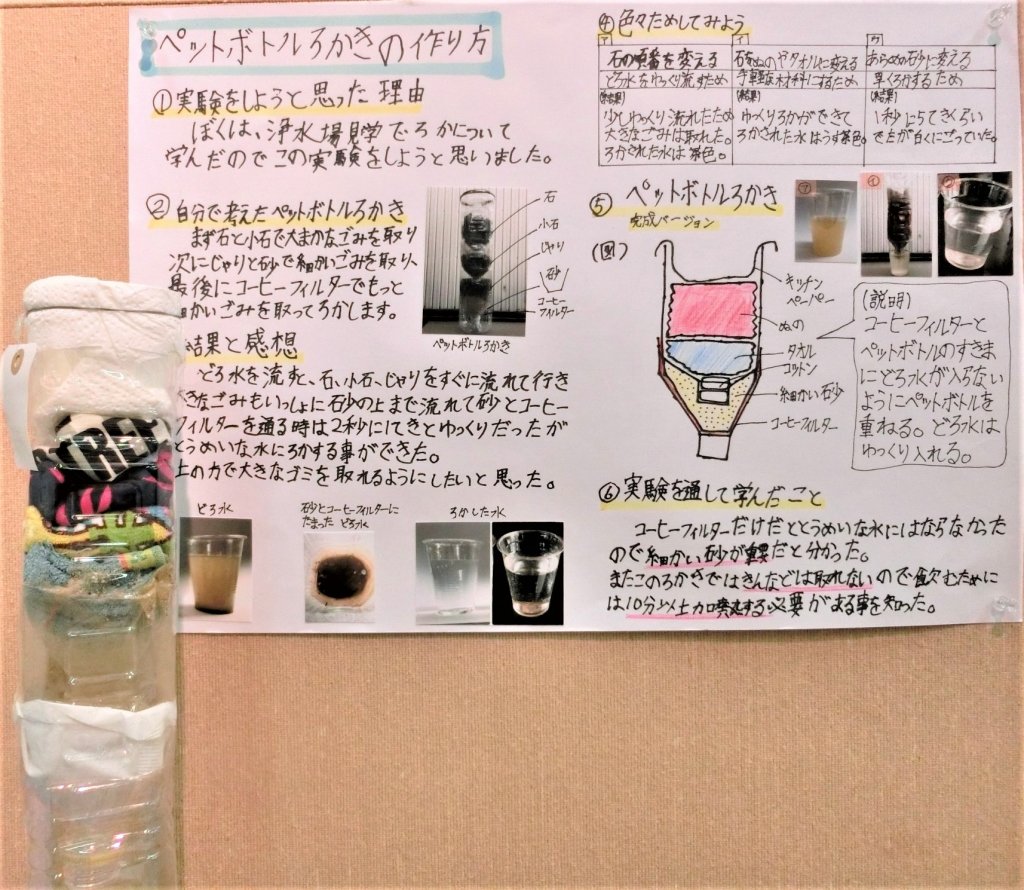 ペットボトルろかきの作り方
①実験をしようと思った理由
ぼくは、浄水場見学でろかについて
学んだのでこの実験をしようと思いました。
②自分で考えたペットボトルろかき
まず石と小石で大まかなごみを取り
次にじゃりと砂で細かいごみを取り、
最後にコーヒーフィルターでもっと
細かいごみを取ってろかします。
石
小石
じゃり
砂
コーヒー
フィルター
ペットボトルろかき
結果と感想
どろ水を流すと、石、小石、じゃりをすぐに流れて行き
大きなごみもいっしょに砂の上まで流れて砂とコーヒー
フィルターを通る時は2秒に1てきとゆっくりだったが
とうめいな水にろかする事ができた。
上の力で大きなゴミを取れるようにしたいと思った。
どろ水
砂とコーヒーフィルターに
たまったどろ水
ろかした水
④色々ためしてみよう
ア
イ
ウ
石の順番を変える
石をぬのやタオルに変える
あらめの砂に変える
どろ水をゆっくり流すため
手軽な材料にするため
早くろかするため
(結果)
少しゆっくり流れたため
大きなごみは取れた。
ろかされた水は茶色。
(結果)
ゆっくりろかができて
ろかされた水はうす茶色。
(結果)
1秒に5てきくらい
で左が白くにごっていた。
⑤ペットボトルろかき
完成バージョン
(図)
ア
イ
ウ
キッチン
ペーパー
ぬの
タオル
コットン
細かい砂
コーヒーフィルター
(説明)
コーヒーフィルターと
ペットボトルのすきま
にどろ水が入らない
ようにペットボトルを
重ねる。どろ水は
ゆっくり入れる。
⑥実験を通して学んだこと
コーヒーフィルターだけだととうめいな水にはならなかった
ので細かい砂が重要だと分かった。
またこのろかきではきんなどは取れないので飲むために
は10分以上加熱する必要がある事を知った。